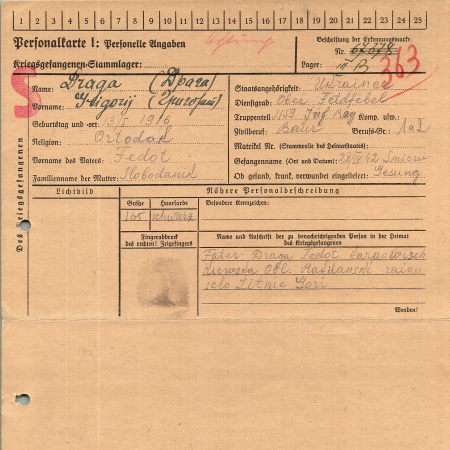 1 2 3 4 5 6 7 8 9 10 11 12 13 14 15 16 17 18 19 20 21 22 23 24 25
Personalkarte I: Personelle Angaben
Achtung
Beschriftung der Erkennungsmarke
Nr.
363
Kriegsgefangenen-Stammlager:
Lager: III B
Des Kriegsgefangenen
S
Name: Draga (Драга)
Vorname: Grigorij (Григорий)
Geburtstag und -ort: 1916
Religion: Ortodox
Vorname des Vaters: Fedot
Familienname der Mutter: Slobodanik
Staatsangehörigkeit: Ukrainer
Dienstgrad: Ober Feldfebel
Truppenteil: 1159 Inf Rag Komp. usw.:
Zivilberuf: Bauer Berufs-Gr.: 1a2
Matrikel Nr. (Stammrolle des Heimatstaates):
Gefangennahme (Ort und Datum):
Ob gesund, krank, verwundet eingeliefert: Gesung
Lichtbild
Nähere Personalbeschreibung
Größe Haarfarbe Besondere Kennzeichen:
165 schwarz
Fingerabdruck
des rechten! Zeigefingers
Name und Anschrift der zu benachrichtigenden Person in der Heimat
des Kriegsgefangenen
Fater: Draga Fedot
Obl.
selo Zitnie Gori
Wenden!